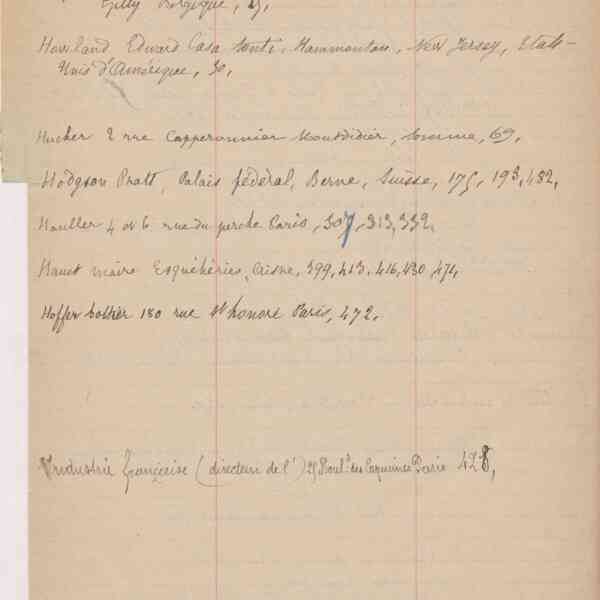 Gilly Belgique, 29,
Howland Edward Casa tonti, Hammonton, New Jersey, Etats-
Unis d'Amérique, 30,
Hucher 2 rue Capperonnier Montdidier, Somme, 69,
Hodgson Pratt, Palais fédéral, Berne, Suisse, 175, 193, 432,
4 et 6 rue du perche Paris, 307, 313, 332,
maire Esquéhéries, Aisne, 399, 413, 416, 430, 471,
Hoffer bottier 180 rue St honoré Paris, 472,
Industrie française (directeur de l') Boul.d des Capucines Paris 428,